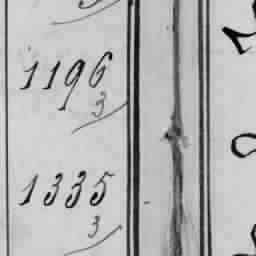 1196
3
1335
3